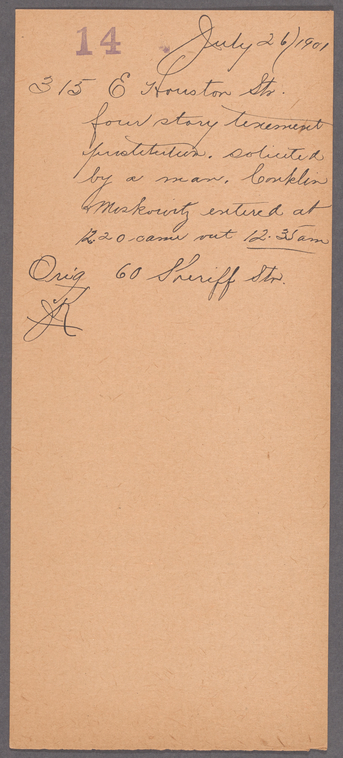 14
July 26/1901
315 E Houston Str.
four story tenement
prostitution. solicited
by a man. Conklin
& Moskowitz entered at
12.20 came out 12.35 am
Orig 60 Sheriff Str.
JK